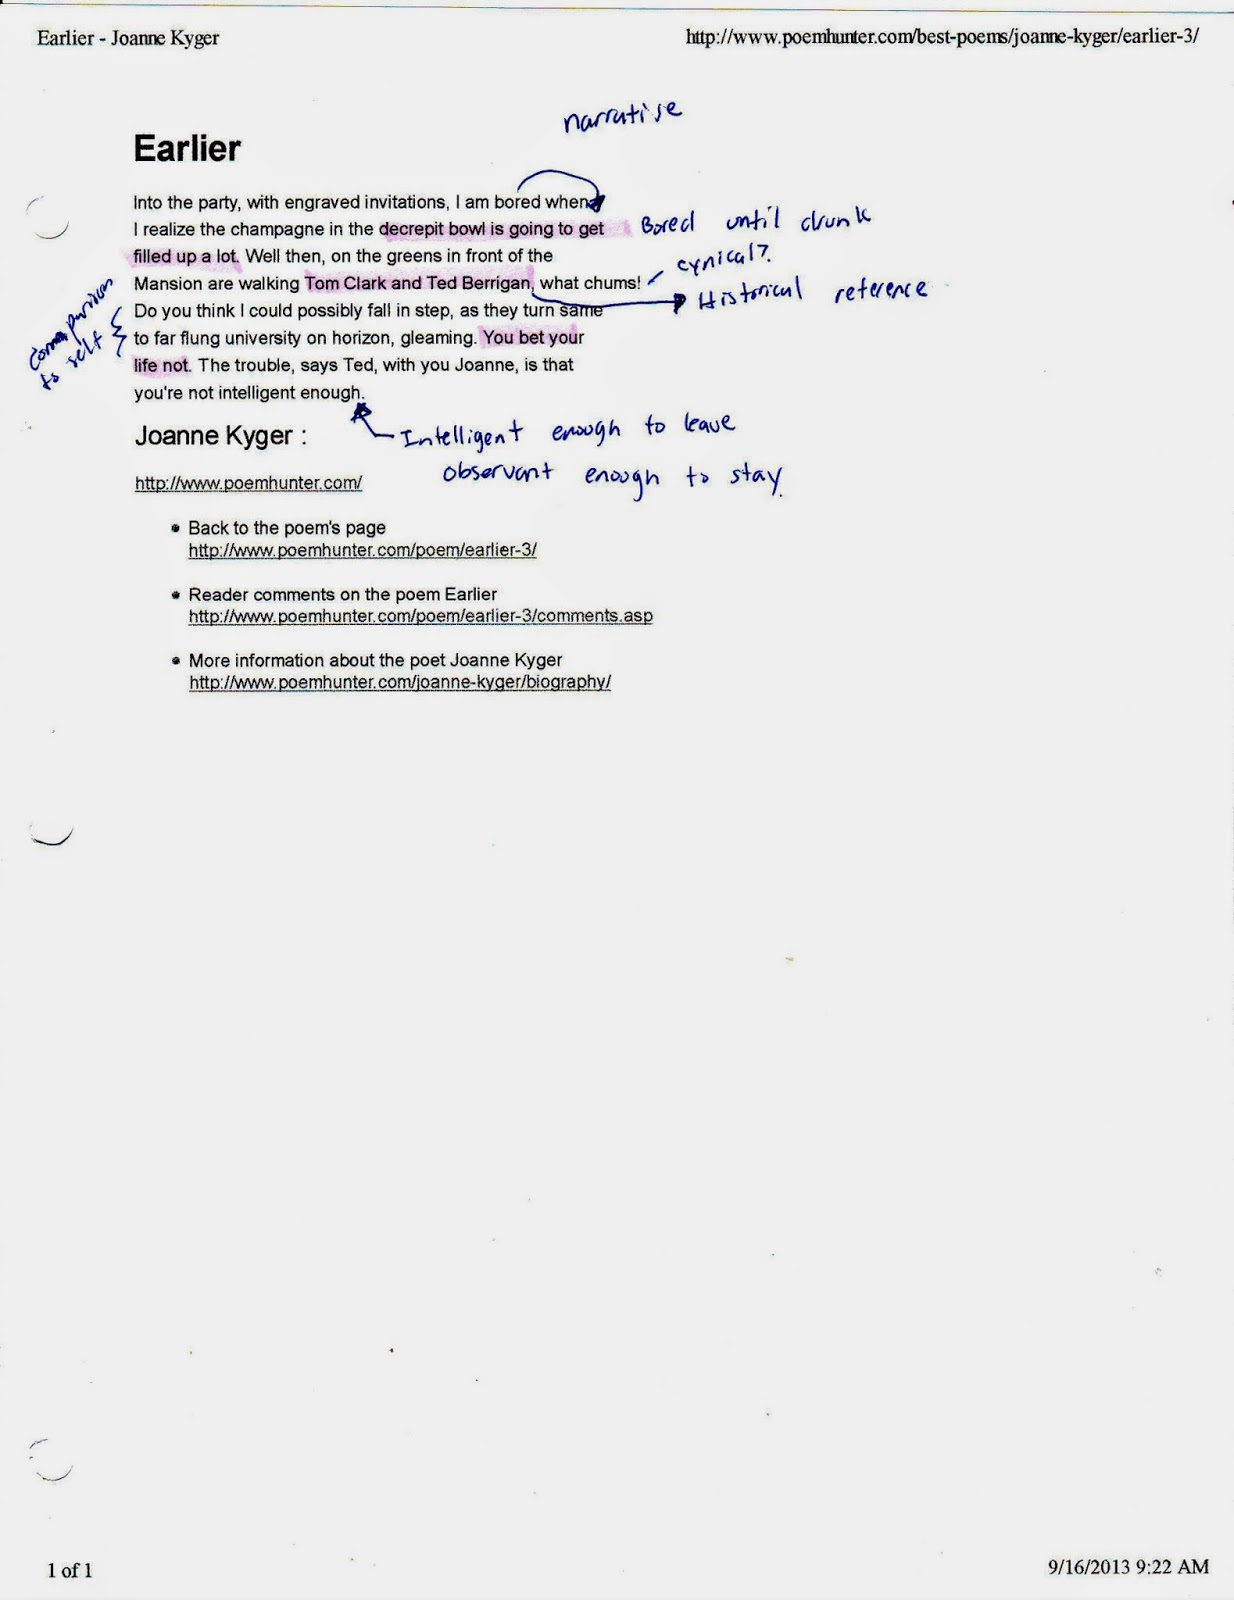 Earlier - Joanne Kyger
http://www.poemhunter.com/best-poems/joanne-kyger/earlier-3/
narrative
Earlier
Into the party, with engraved invitations, I am bored when
I realize the champagne in the decrepit bowl is going to get
Bored until drunk
filled up a lot. Well then, on the greens in front of the
cynical?
Mansion are walking Tom Clark and Ted Berrigan, what chums!
Historical reference
Do you think I could possibly fall in step, as they turn same
Comparison
to self
to far flung university on horizon, gleaming. You bet your
life not. The trouble, says Ted, with you Joanne, is that
you're not intelligent enough.
Intelligent enough to leave
observant enough to stay.
Joanne Kyger :
http://www.poemhunter.com/
• Back to the poem's page
http://www.poemhunter.com/poem/earlier-3/
• Reader comments on the poem Earlier
http://www.poemhunter.com/poem/earlier-3/comments.asp
• More information about the poet Joanne Kyger
http://www.poemhunter.com/joanne-kyger/biography/
1 of 1
9/16/2013 9:22 AM